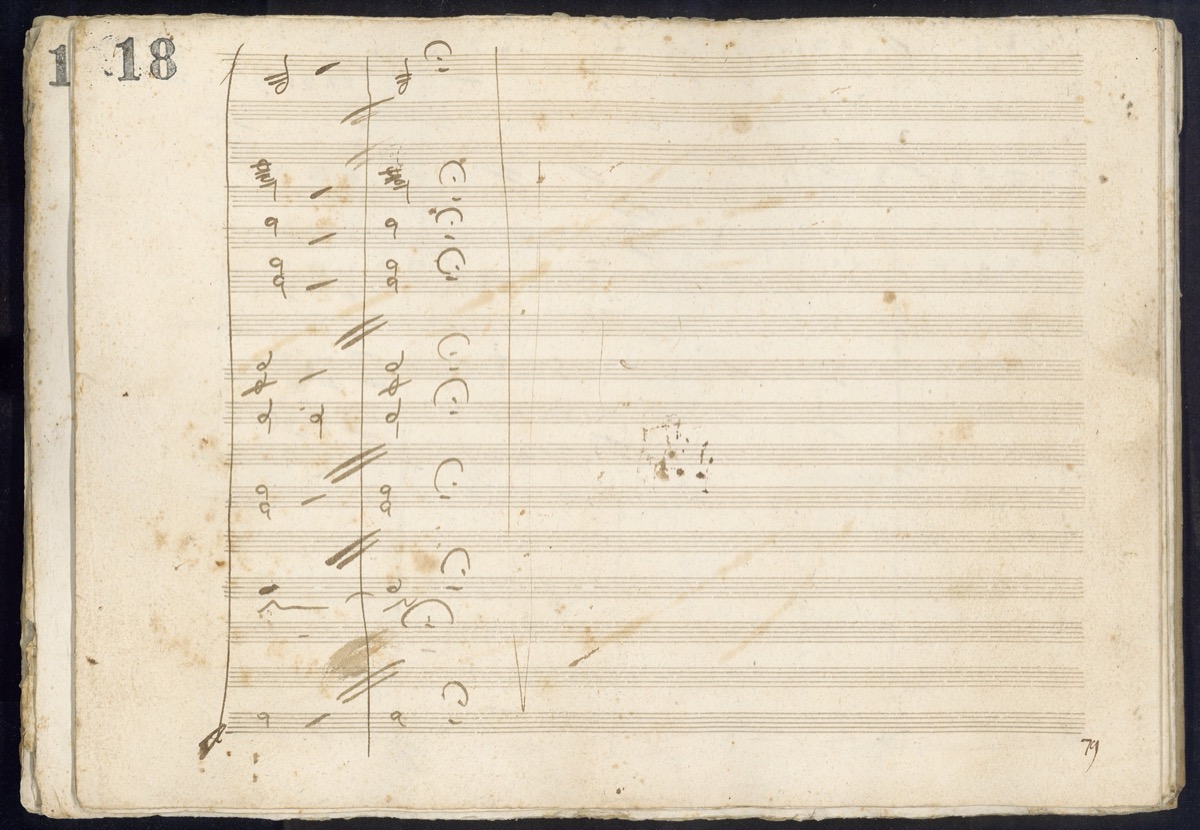 1 18
79